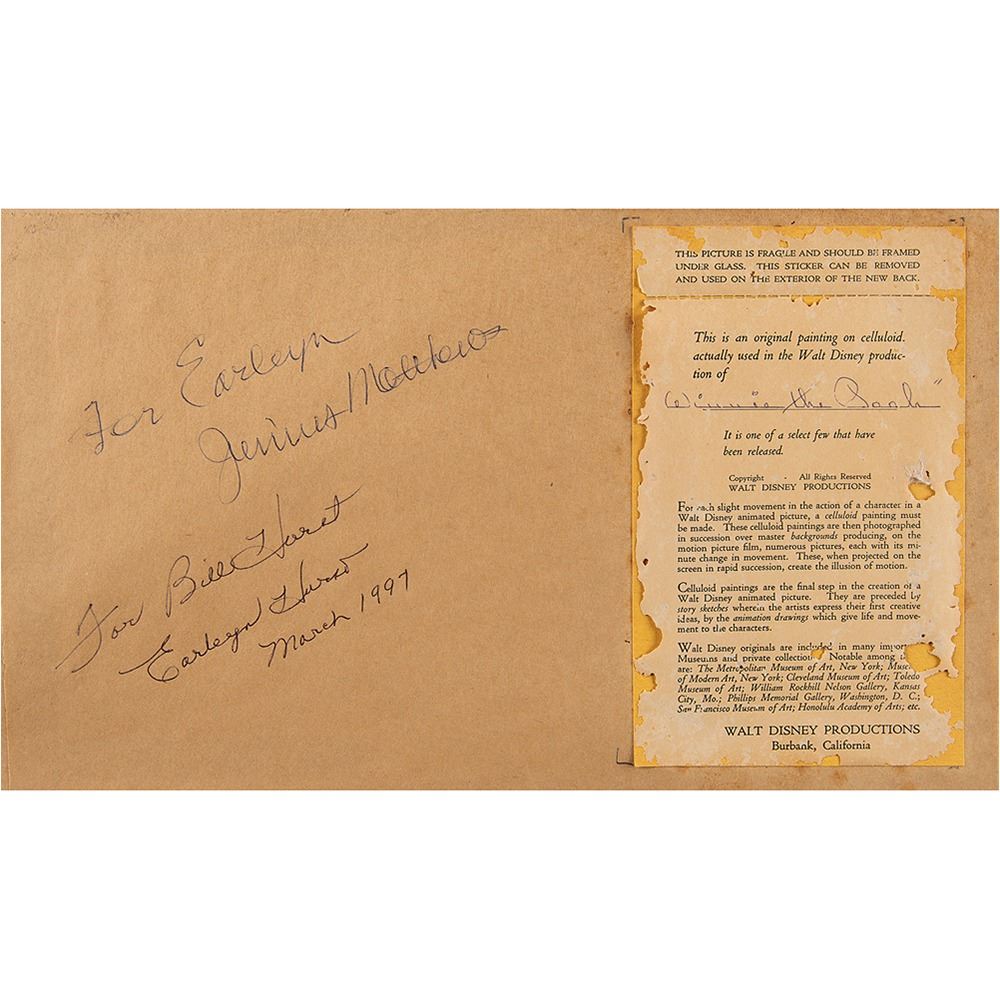 For Earleyn
Junius Matthews
For Bill Hurst
Earleyn Hurst
March 1997
THIS PICTURE IS FRAGILE AND SHOULD BE FRAMED
UNDER GLASS. THIS STICKER CAN BE REMOVED
AND USED ON THE EXTERIOR OF THE NEW BACK.
This is an original painting on celluloid.
actually used in the Walt Disney produc-
tion of
Winnie the Pooh"
It is one of a select few that have
been released.
Copyright · All Rights Reserved
WALT DISNEY PRODUCTIONS
For each slight movement in the action of a character in a
Walt Disney animated picture, a celluloid painting must
be made. These celluloid paintings are then photographed
in succession over master backgrounds producing, on the
motion picture film, numerous pictures, each with its mi-
nute change in movement. These, when projected on the
screen in rapid succession, create the illusion of motion.
Celluloid paintings are the final step in the creation of a
Walt Disney animated picture. They are preceded by
story sketches wherein the artists express their first creative
ideas, by the animation drawings which give life and move-
ment to the characters.
Walt Disney originals are included in many
Museums and private Notable among
are: The Metropolitan Museum of Art, New York;
of Modern Art, New York; Cleveland Museum of Art; Toledo
Museum of Art; William Rockhill Nelson Gallery, Kansas
City, Mo.; Phillips Memorial Gallery, Washington, D. C.;
San Francisco Museum of Art; Honolulu Academy of Arts; etc.
WALT DISNEY PRODUCTIONS
Burbank, California